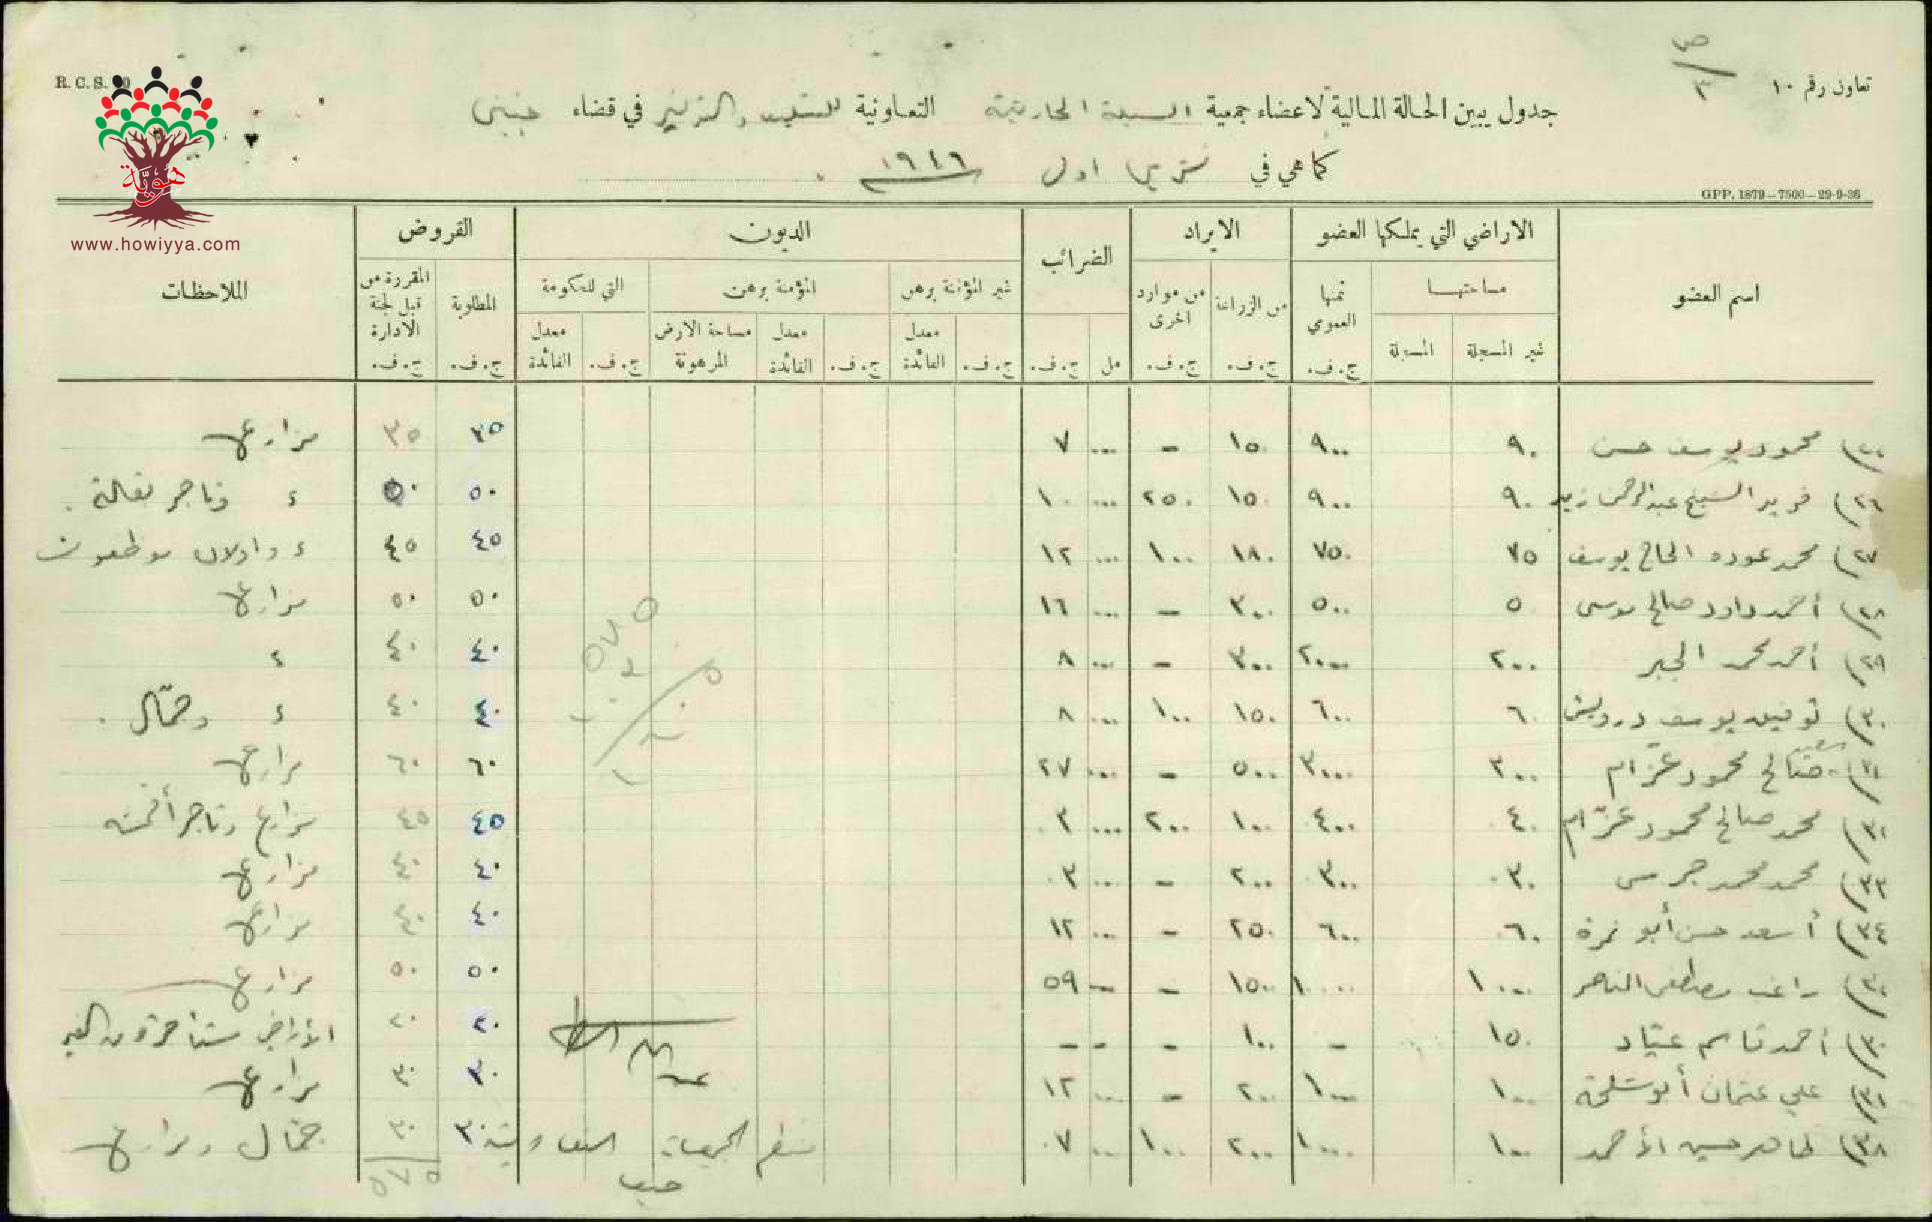 R.C.S. 10
تعاون رقم ١٠
ص ٣
جدول يبين الحالة المالية لاعضاء جمعية السيلة الحارثية التعاونية للتسليف والتوفير في قضاء جنين
كما هي في تشرين اول ١٩٤٦
GPP. 1879—7500—29-9-36
هويّة
www.howiyya.com
اسم العضو الاراضي التي يملكها العضو الايراد الضرائب الديون القروض الملاحظات
مساحتها ثمنها العمومي من الزراعة من موارد اخرى غير المؤمنة برهن المؤمنة برهن التي للحكومة المطلوبة المقررة من قبل لجنة الادارة
غير المسجلة المسجلة ج.ف. ج.ف. ج.ف. مل ج.ف. ج.ف. معدل الفائدة ج.ف. معدل الفائدة مساحة الارض المرهونة ج.ف. معدل الفائدة ج.ف. ج.ف.
محمود يوسف حسن ٩٠ ٩٠٠ ١٥٠ - ... ٧ ٣٥ ٣٥ مزارع
٢٦) فريد الشيخ عبدالرحمن زيد ٩٠ ٩٠٠ ١٥٠ ٢٥٠ ... ١٠ ٥٠ ٥٠ ء وتاجر بقالة
٢٧) محمد عوده الحاج يوسف ٧٥ ٧٥٠ ١٨٠ ١٠٠ ... ١٢ ٤٥ ٤٥ ء واولاده موظفون
٢٨) أحمد داود صالح موسى ٥٠ ٥٠٠ ٣٠٠ - ... ١٦ ٥٠ ٥٠ مزارع
٢٩) أحمد محمد الجبر ٢٠٠ ٢٠٠٠ ٣٠٠ - ... ٨ ٤٠ ٤٠ ء
٣٠) توفيق يوسف درويش ٦٠ ٦٠٠ ١٥٠ ١٠٠ ... ٨ ٤٠ ٤٠ ء وحمّال
صالح محمود عزّام ٣٠٠ ٣٠٠٠ ٥٠٠ - ... ٢٧ ٦٠ ٦٠ مزارع
محمد صالح محمود عزّام ٤٠ ٤٠٠ ١٠٠ ٢٠٠ ... ٣ ٤٥ ٤٥ مزارع وتاجر أقمشه
٣٣) محمد محمد جرس ٣٠ ٣٠٠ ٢٠٠ - ... ٣ ٤٠ ٤٠ مزارع
٣٤) أسعد حسن أبو نمرة ٦٠ ٦٠٠ ٢٥٠ - ... ١٢ ٤٠ ٤٠ مزارع
راغب مصطفى الناصر ١٠٠٠ ١٠٠٠٠ ١٥٠٠ - - ٥٩ ٥٠ ٥٠ مزارع
أحمد قاسم عيّاد ١٥٠ - ١٠٠ - - - ٢٠ ٢٠ الأراضي مستأجرة من الغير
علي عثمان أبو شلحة ١٠٠ ١٠٠٠ ٢٠٠ - ... ١٢ ٣٠ ٣٠ مزارع
٣٨) طاهر حسين الأحمد ١٠٠ ١٠٠٠ ٢٠٠ ١٠٠ ... ٧ ٣٠ ٣٠ جمّال ومزارع
٥٧٥
منظم الجمعيات التعاونية
جنين
٥٧٥